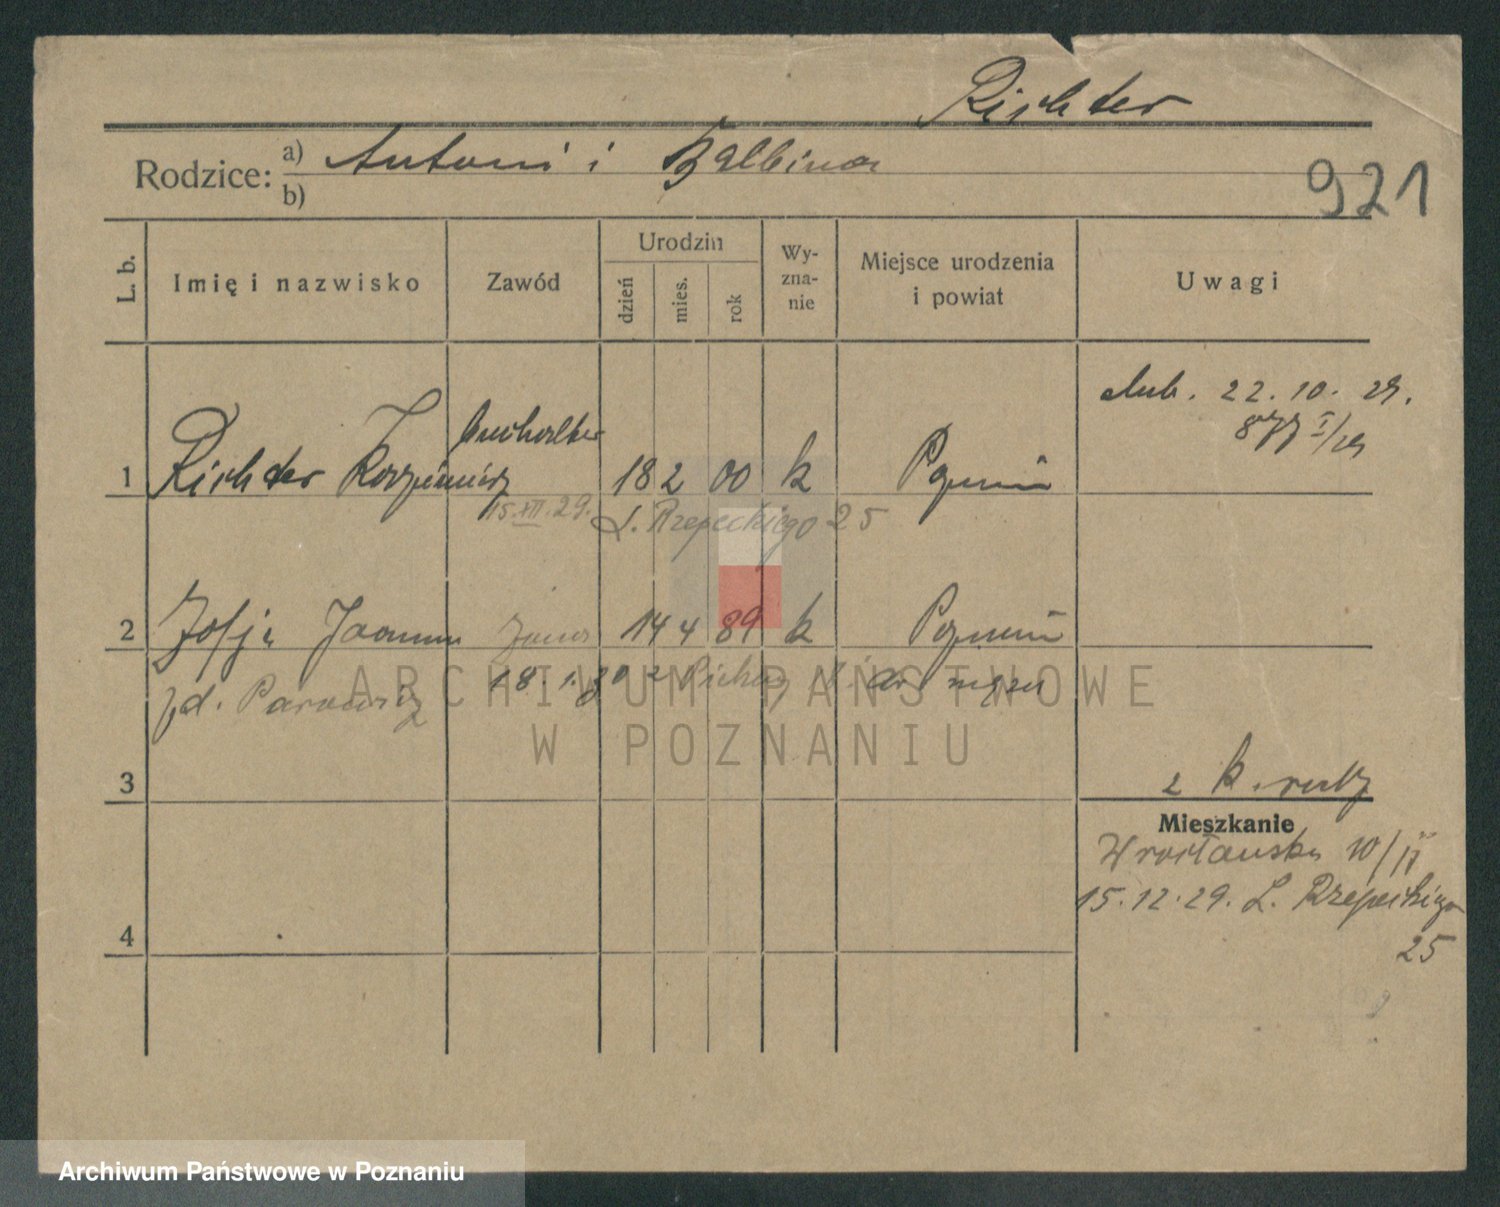 Richter
Rodzice: a) Antoni i Balbina
b)
921
L. b.
Imię i nazwisko
Zawód
Urodzin
dzień
mies.
rok
Wy-
zna-
nie
Miejsce urodzenia
i powiat
Uwagi
ślub. 22.10.29.
877 I/29
buchalter
1 Richter Kazimierz 18 2 00 k Poznań
15.XII.29. L. Rzepeckiego 25
2 Zofja Joanna żona 14 4 89 k Poznań
zd.
18.1.30 z męża
ARCHIWUM PAŃSTWOWE
W POZNANIU
3
z k.
Mieszkanie
Wrocławska 10/II
15.12.29. L. Rzepeckiego
25
4
Archiwum Państwowe w Poznaniu